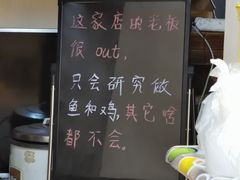 这家店的老板
很 out,
只会研究做
鱼和鸡,其它啥
都不会。